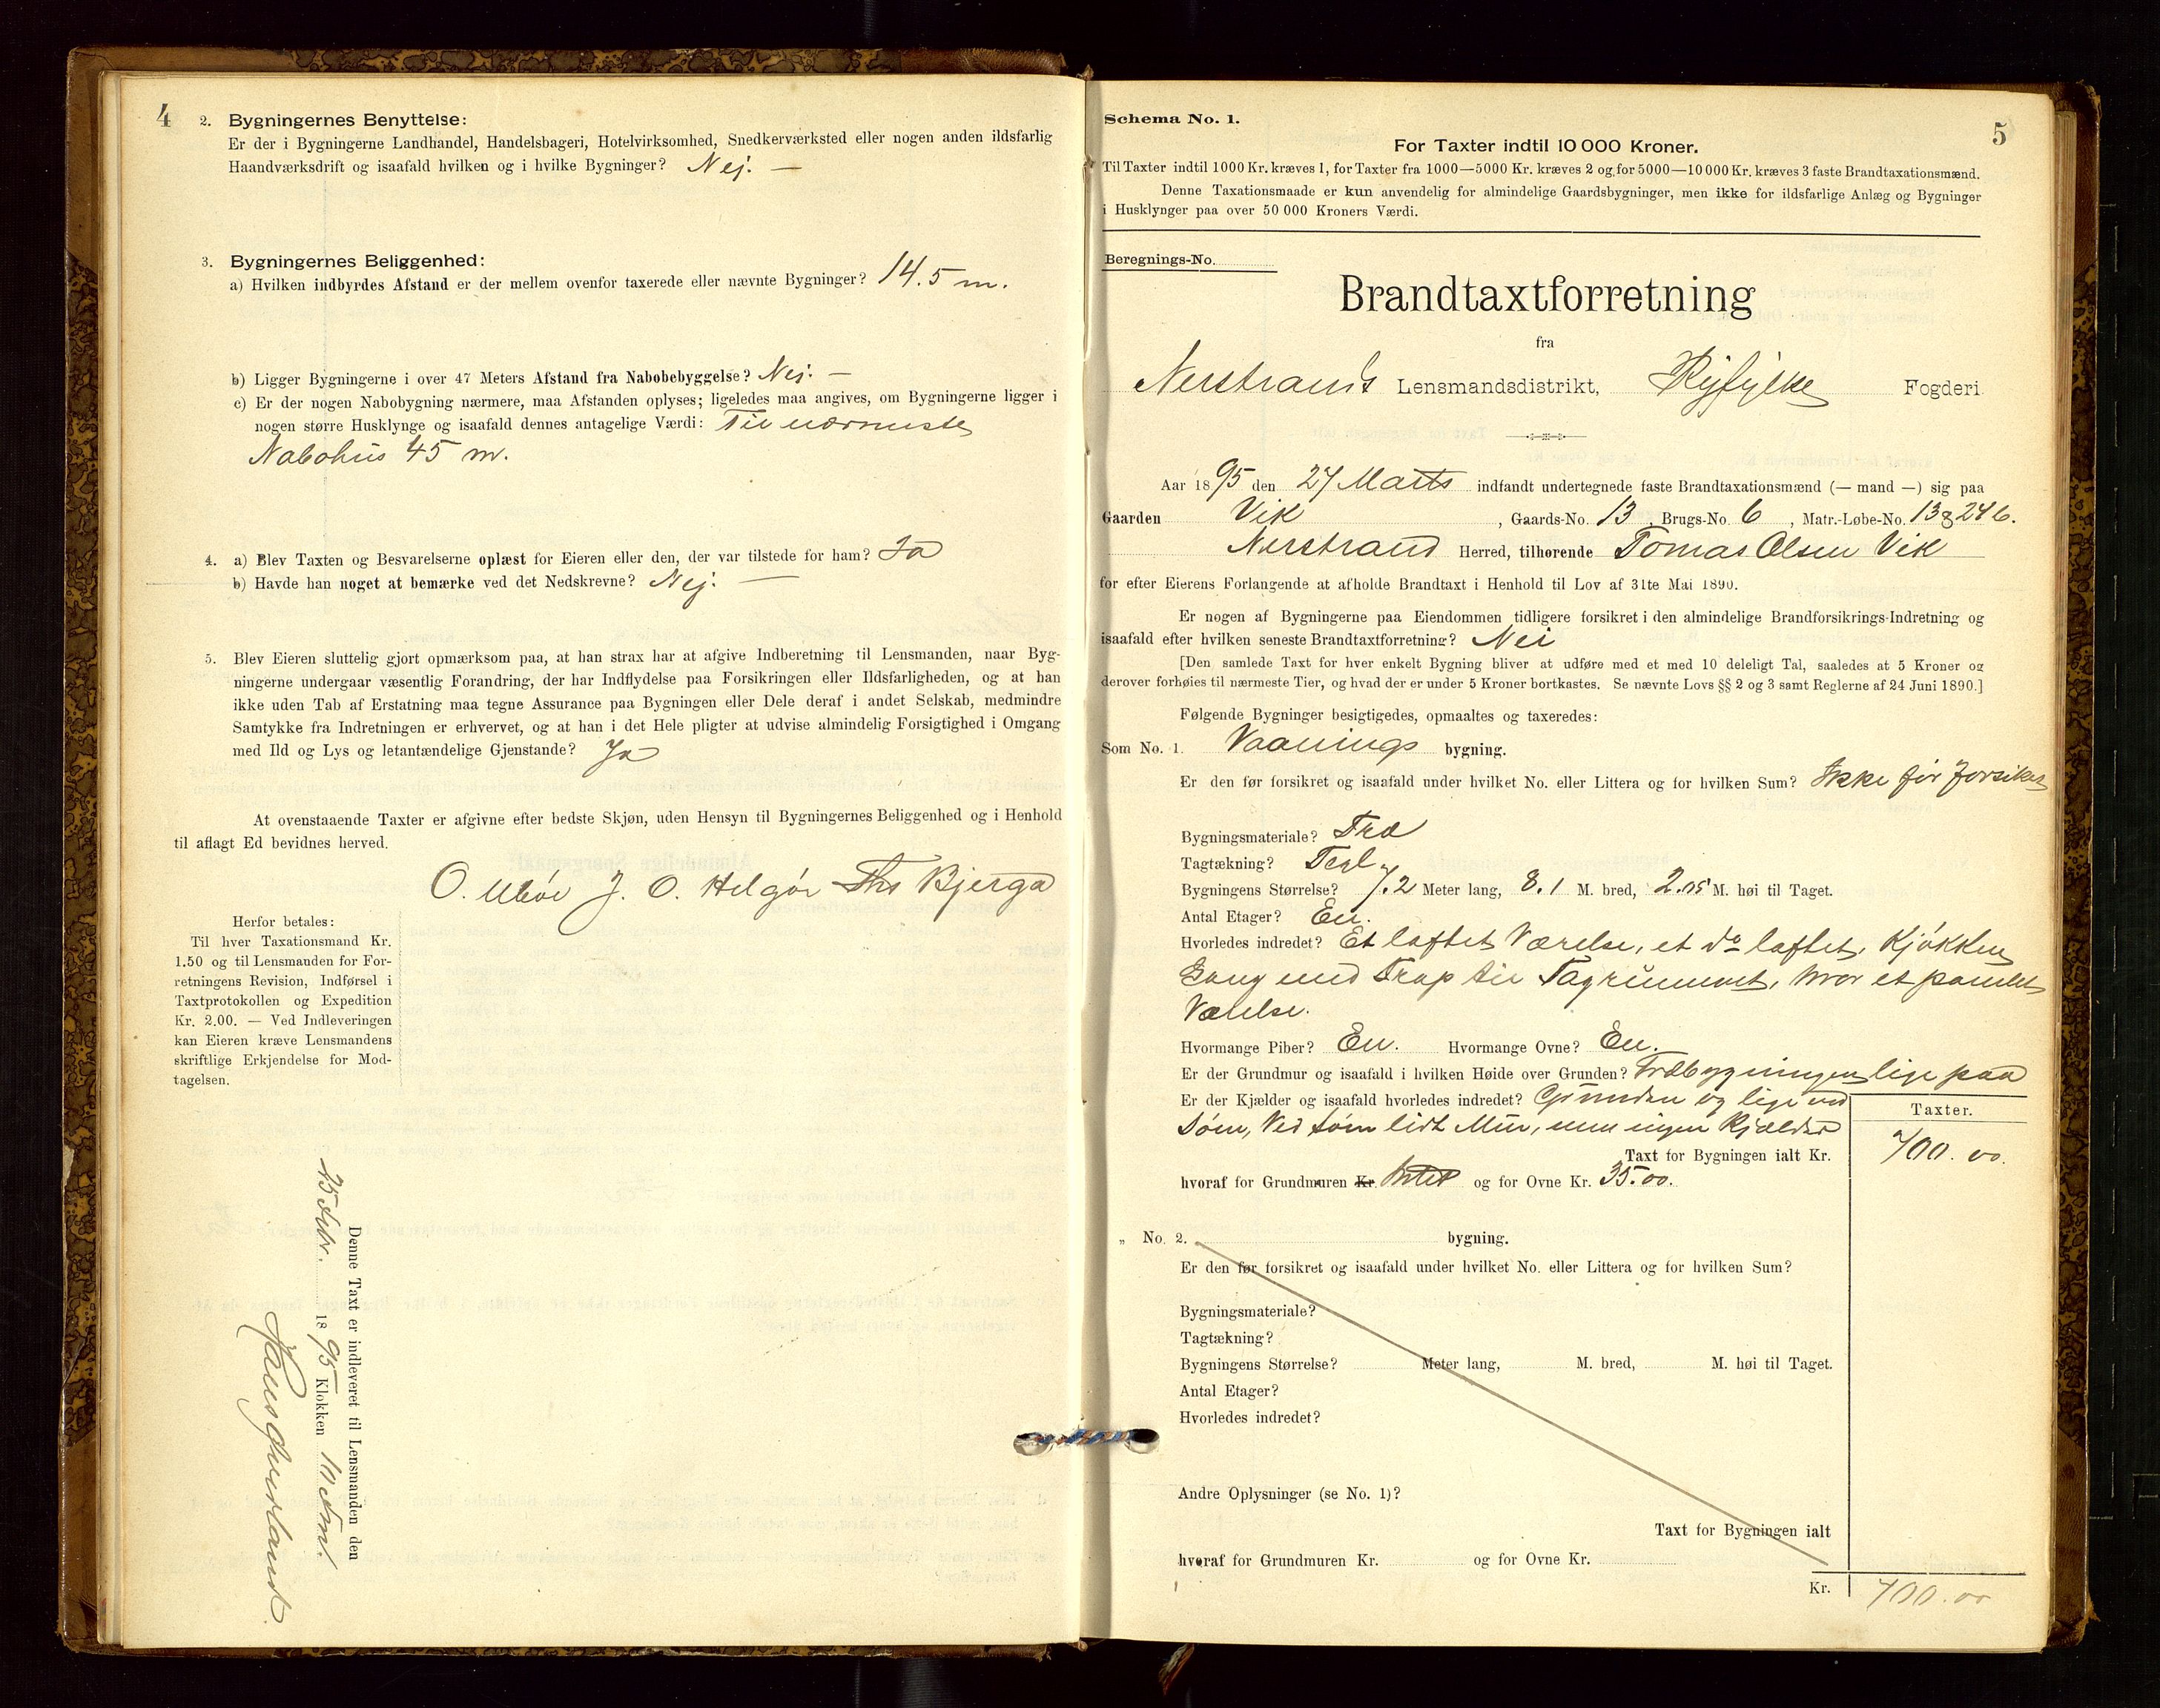 4
2. Bygningernes Benyttelse:
Er der i Bygningerne Landhandel, Handelsbageri, Hotelvirksomhed, Snedkerværksted eller nogen anden ildsfarlig
Haandværksdrift og isaafald hvilken og i hvilke Bygninger? Nej. —
3. Bygningernes Beliggenhed:
a) Hvilken indbyrdes Afstand er der mellem ovenfor taxerede eller nævnte Bygninger? 14.5 m.
b) Ligger Bygningerne i over 47 Meters Afstand fra Nabobebyggelse? Nei. —
c) Er der nogen Nabobygning nærmere, maa Afstanden oplyses; ligeledes maa angives, om Bygningerne ligger i
nogen større Husklynge og isaafald dennes antagelige Værdi: Til nærmeste
Nabohus 45 m.
4. a) Blev Taxten og Besvarelserne oplæst for Eieren eller den, der var tilstede for ham? Ja
b) Havde han noget at bemærke ved det Nedskrevne? Nej. —
5. Blev Eieren sluttelig gjort opmærksom paa, at han strax har at afgive Indberetning til Lensmanden, naar Byg-
ningerne undergaar væsentlig Forandring, der har Indflydelse paa Forsikringen eller Ildsfarligheden, og at han
ikke uden Tab af Erstatning maa tegne Assurance paa Bygningen eller Dele deraf i andet Selskab, medmindre
Samtykke fra Indretningen er erhvervet, og at han i det Hele pligter at udvise almindelig Forsigtighed i Omgang
med Ild og Lys og letantændelige Gjenstande? Ja
At ovenstaaende Taxter er afgivne efter bedste Skjøn, uden Hensyn til Bygningernes Beliggenhed og i Henhold
til aflagt Ed bevidnes herved.
O. Ubøe J. O. Helgøe Ths Bjerga
Herfor betales:
Til hver Taxationsmand Kr.
1.50 og til Lensmanden for For-
retningens Revision, Indførsel i
Taxtprotokollen og Expedition
Kr. 2.00. — Ved Indleveringen
kan Eieren kræve Lensmandens
skriftlige Erkjendelse for Mod-
tagelsen.
Denne Taxt er indleveret til Lensmanden den
25 Febr. 1895 Klokken
5
Schema No. 1.
For Taxter indtil 10 000 Kroner.
Til Taxter indtil 1000 Kr. kræves 1, for Taxter fra 1000—5000 Kr. kræves 2 og for 5000—10 000 Kr. kræves 3 faste Brandtaxationsmænd.
Denne Taxationsmaade er kun anvendelig for almindelige Gaardsbygninger, men ikke for ildsfarlige Anlæg og Bygninger
i Husklynger paa over 50 000 Kroners Værdi.
Beregnings-No.
Brandtaxtforretning
fra
Nerstrands Lensmandsdistrikt, Ryfylke Fogderi
Aar 1895 den 27 Marts indfandt undertegnede faste Brandtaxationsmænd (— mand —) sig paa
Gaarden Vik, Gaards-No. 13, Brugs-No. 6, Matr.-Løbe-No. 13 & 24 b.
Nerstrand Herred, tilhørende Tomas Olsen Vik
for efter Eierens Forlangende at afholde Brandtaxt i Henhold til Lov af 31te Mai 1890.
Er nogen af Bygningerne paa Eiendommen tidligere forsikret i den almindelige Brandforsikrings-Indretning og
isaafald efter hvilken seneste Brandtaxtforretning? Nei
[Den samlede Taxt for hver enkelt Bygning bliver at udføre med et med 10 deleligt Tal, saaledes at 5 Kroner og
derover forhøies til nærmeste Tier, og hvad der er under 5 Kroner bortkastes. Se nævnte Lovs §§ 2 og 3 samt Reglerne af 24 Juni 1890.]
Følgende Bygninger besigtigedes, opmaaltes og taxeredes:
Som No. 1. Vaanings bygning.
Er den før forsikret og isaafald under hvilket No. eller Littera og for hvilken Sum? Ikke før forsikret
Bygningsmateriale? Træ
Tagtækning? Tegl
Bygningens Størrelse? 7.2 Meter lang, 8.1 M. bred, 2.75 M. høi til Taget.
Antal Etager? En.
Hvorledes indredet? Et loftet Værelse, et do loftet, Kjøkken
Gang med Trap til Tagrummet, hvor et panelet
Værelse.
Hvormange Piber? En. Hvormange Ovne? En.
Er der Grundmur og isaafald i hvilken Høide over Grunden? Træbygningen lige paa
Er der Kjælder og isaafald hvorledes indredet? Grunden og lige ved
Søen, Ved Søen lidt Mur, men ingen Kjælder
Taxter.
Taxt for Bygningen ialt Kr. 700.00.
hvoraf for Grundmuren Kr. Intet og for Ovne Kr. 35.00.
„ No. 2. bygning.
Er den før forsikret og isaafald under hvilket No. eller Littera og for hvilken Sum?
Bygningsmateriale?
Tagtækning?
Bygningens Størrelse? Meter lang, M. bred, M. høi til Taget.
Antal Etager?
Hvorledes indredet?
Andre Oplysninger (se No. 1)?
Taxt for Bygningen ialt
hvoraf for Grundmuren Kr. og for Ovne Kr.
Kr. 700.00